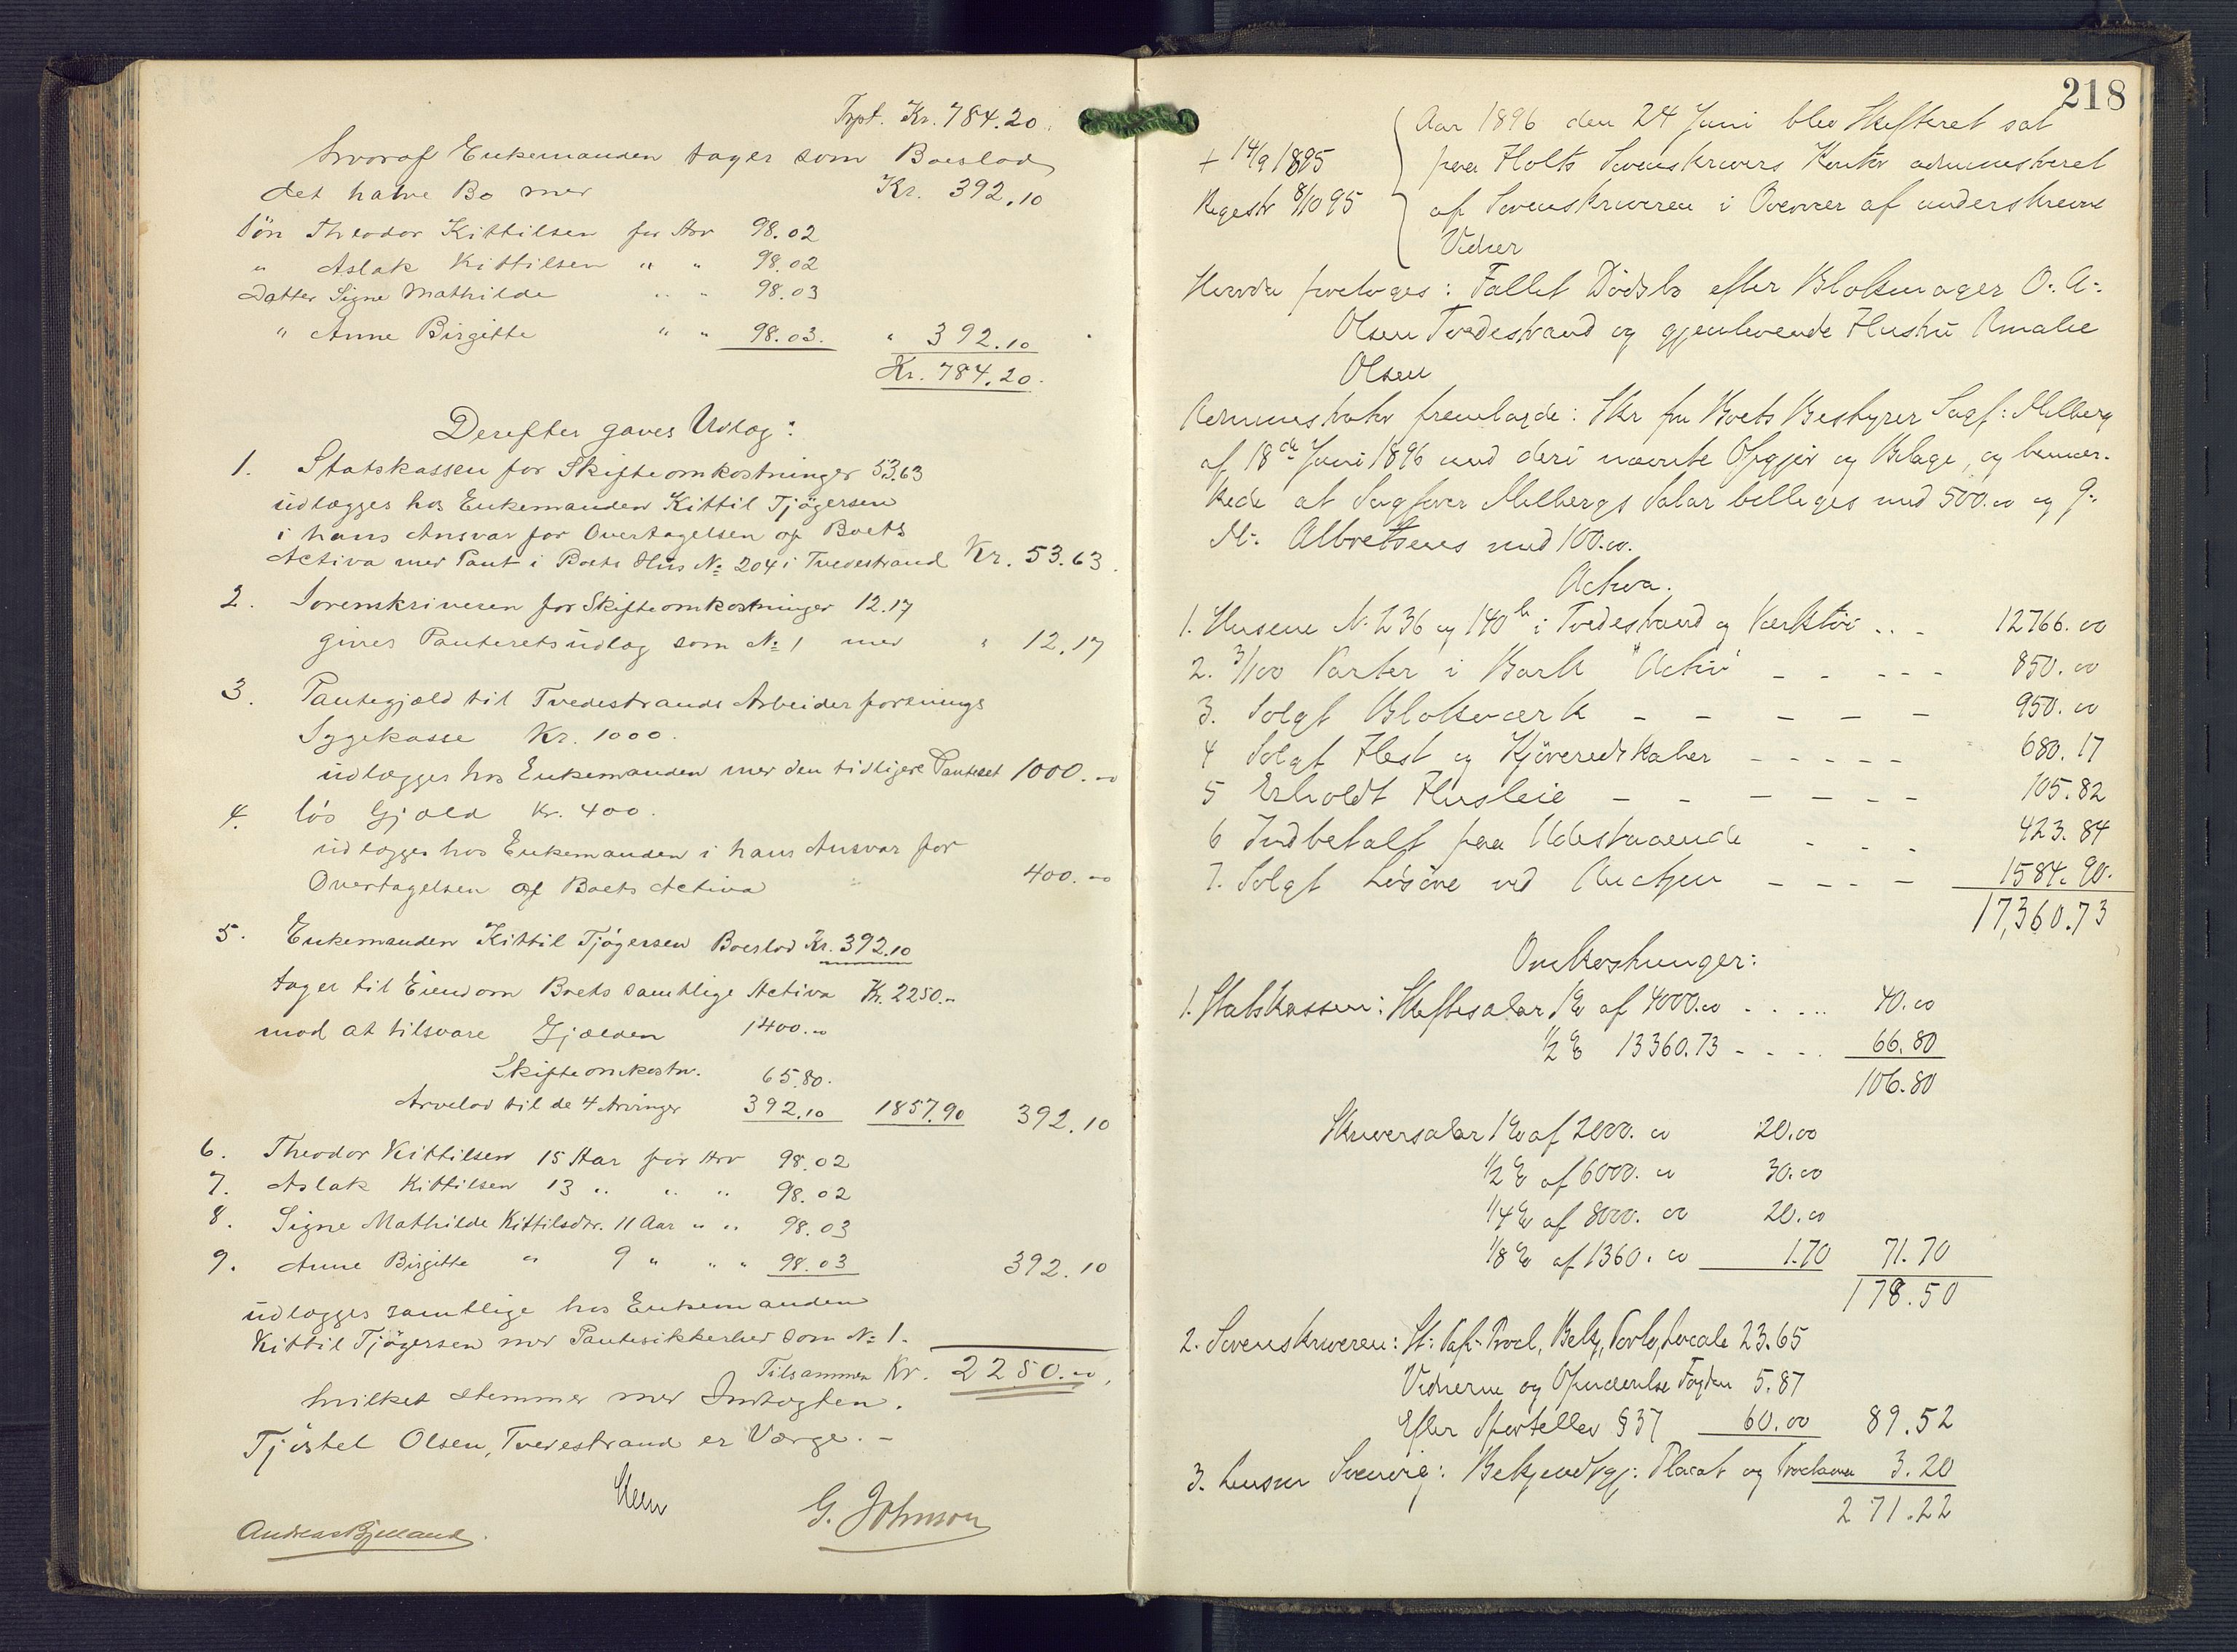 Trpt. Kr. 784.20.
hvoraf Enkemanden tager som Boeslod
det halve Bo med Kr. 392.10
Sön Theodor Kittilsen for Arv 98.02
" Aslak Kittilsen " " 98.02
Datter Signe Mathilde " " 98.03
" Anne Birgitte " " 98.03. " 392.10
Kr. 784.20.
Derefter gaves Udlæg:
1. Statskassen for Skifteomkostninger 53.63
udlægges hos Enkemanden Kittil Tjögersen
i hans Ansvar for Overtagelsen af Boets
Activa med Pant i Boets Hus No 204 i Tvedestrand Kr. 53.63.
2. Sorenskriveren for Skifteomkostninger 12.17
gives Panteretsudlæg som No 1 med " 12.17
3. Pantegjæld til Tvedestrands Arbeiderforenings
Sygekasse Kr. 1000.
udlægges hos Enkemanden med den tidligere Panteret 1000.00
4. Løs Gjæld Kr. 400.
udlægges hos Enkemanden i hans Ansvar for
Overtagelsen af Boets Activa 400.00
5. Enkemanden Kittil Tjögersen Boeslod Kr. 392.10
tager til Eiendom Boets samtlige Activa Kr. 2250.-
mod at tilsvare Gjælden 1400.00
Skifteomkostn. 65.80.
Arvelod til de 4 Arvinger 392.10 1857.90 392.10
6. Theodor Kittilsen 15 Aar for Arv 98.02
7. Aslak Kittilsen 13 " " " 98.02
8. Signe Mathilde Kittilsdtr. 11 Aar " " 98.03
9. Anne Birgitte " 9 " " " 98.03 392.10
udlægges samtlige hos Enkemanden
Kittil Tjögersen med Pantesikkerhed som No 1.
Tilsammen Kr. 2250.00.
hvilket stemmer med Indtægten.
Tjöstel Olsen, Tvedestrand er Værge. -
G. Johnson
Andreas Bjelland.
218
Aar 1896 den 24 Juni blev Skifteret sat
+ 14/9 1895
paa Holts Sorenskrivers Kontor administreret
Registr 8/10 95
af Sorenskriveren i Overvær af underskrevne
Vidner
Herved foretoges: Fallit Dödsbo efter Blokmager O. A.
Olsen Tvedestrand og gjenlevende Hustru Amalie
Olsen
Administrator fremlagde: Skr fra Boets Bestyrer Sagf: Melberg
af 18de Juni 1896 med deri nævnte Opgjör og Bilage, og bemær-
kede at Sagfører Melbergs Salær billiges med 500.00 og
M. Albretsens med 100.00.
Activa.
1. Husene No 236 og 140 b i Tvedestrand og Værktöi .. - 12766.00
2. 3/100 Parter i Bark "Activ" - - - - - 850.00
3. Solgt Blokværk - - - - - 950.00
4 Solgt Hest og Kjöreredskaber - - - - - 680.17
5 Erholdt Husleie - - - - - - 105.82
6 Indbetalt paa Udestaaende - - - 423.84
7. Solgt Lösöre ved Auction - - - - 1584.90.
17,360.73
Omkostninger:
1. Statskassen: Skiftesalær 1% af 4000.00 . . . .. 40.00
1/2 % 13360.73 - . . . 66.80
106.80
Skriversalær 1% af 2000.00 20.00
1/2 % af 6000.00 30.00
1/4 % af 8000.00 20.00
1/8 % af 1360.00 1.70 71.70
178.50
2. Sorenskriveren: St. Pap. Procl, Bekj, Locale 23.65
Vidnerne og Fogden 5.87
Efter Sportellov § 37 60.00 89.52
3. Lensm Bekjendtgj: Placat og 3.20
271.22